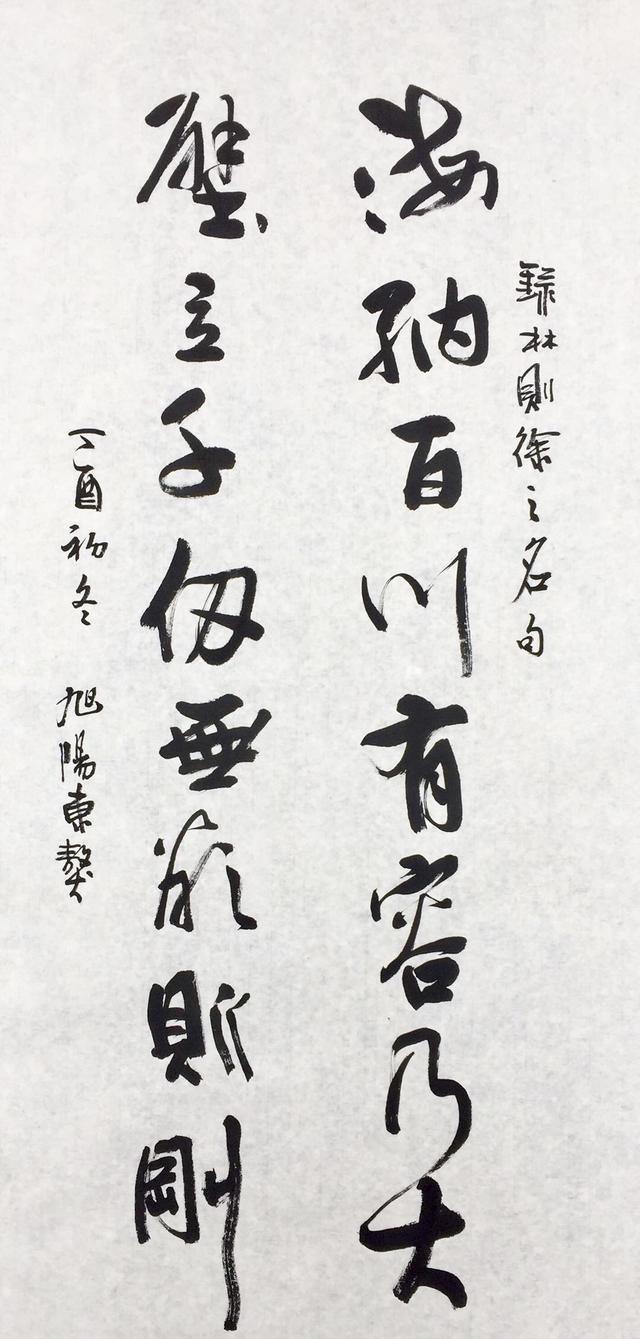 錄林則徐之名句
海納百川有容乃大
壁立千仞無欲則剛
丁酉初冬 旭陽東鰲